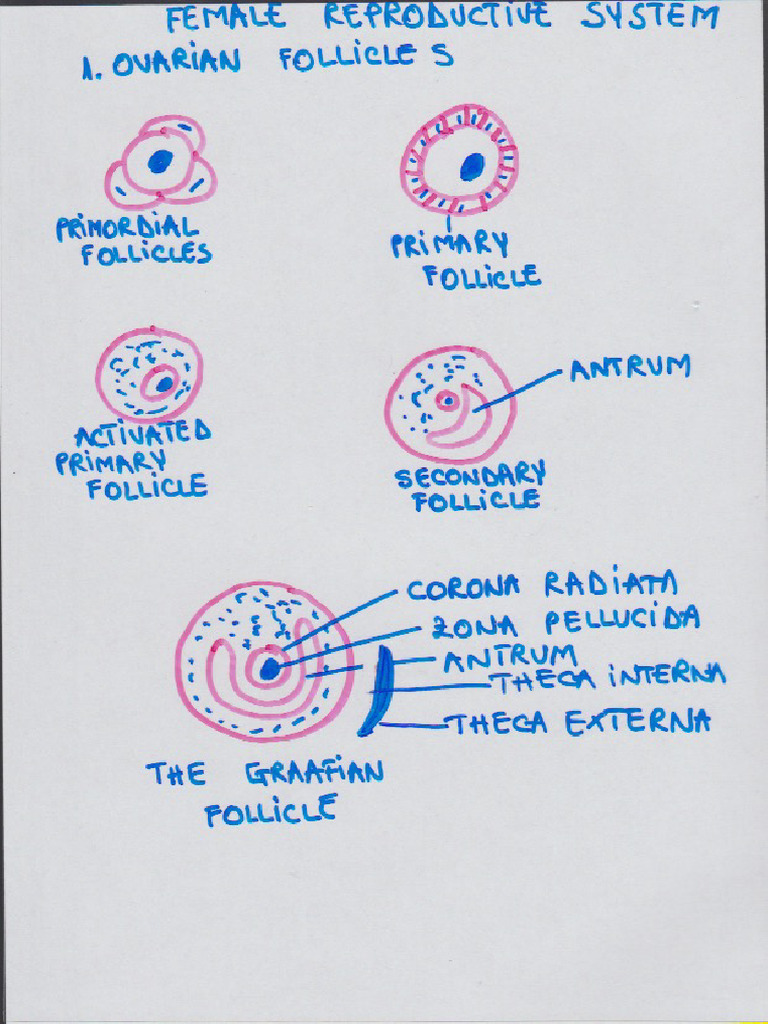 FEMALE REPRODUCTIVE SYSTEM
1. OVARIAN FOLLICLES
PRIMORDIAL
FOLLICLES
PRIMARY
FOLLICLE
ACTIVATED
PRIMARY
FOLLICLE
ANTRUM
SECONDARY
FOLLICLE
CORONA RADIATA
ZONA PELLUCIDA
ANTRUM
THECA INTERNA
THECA EXTERNA
THE GRAAFIAN
FOLLICLE